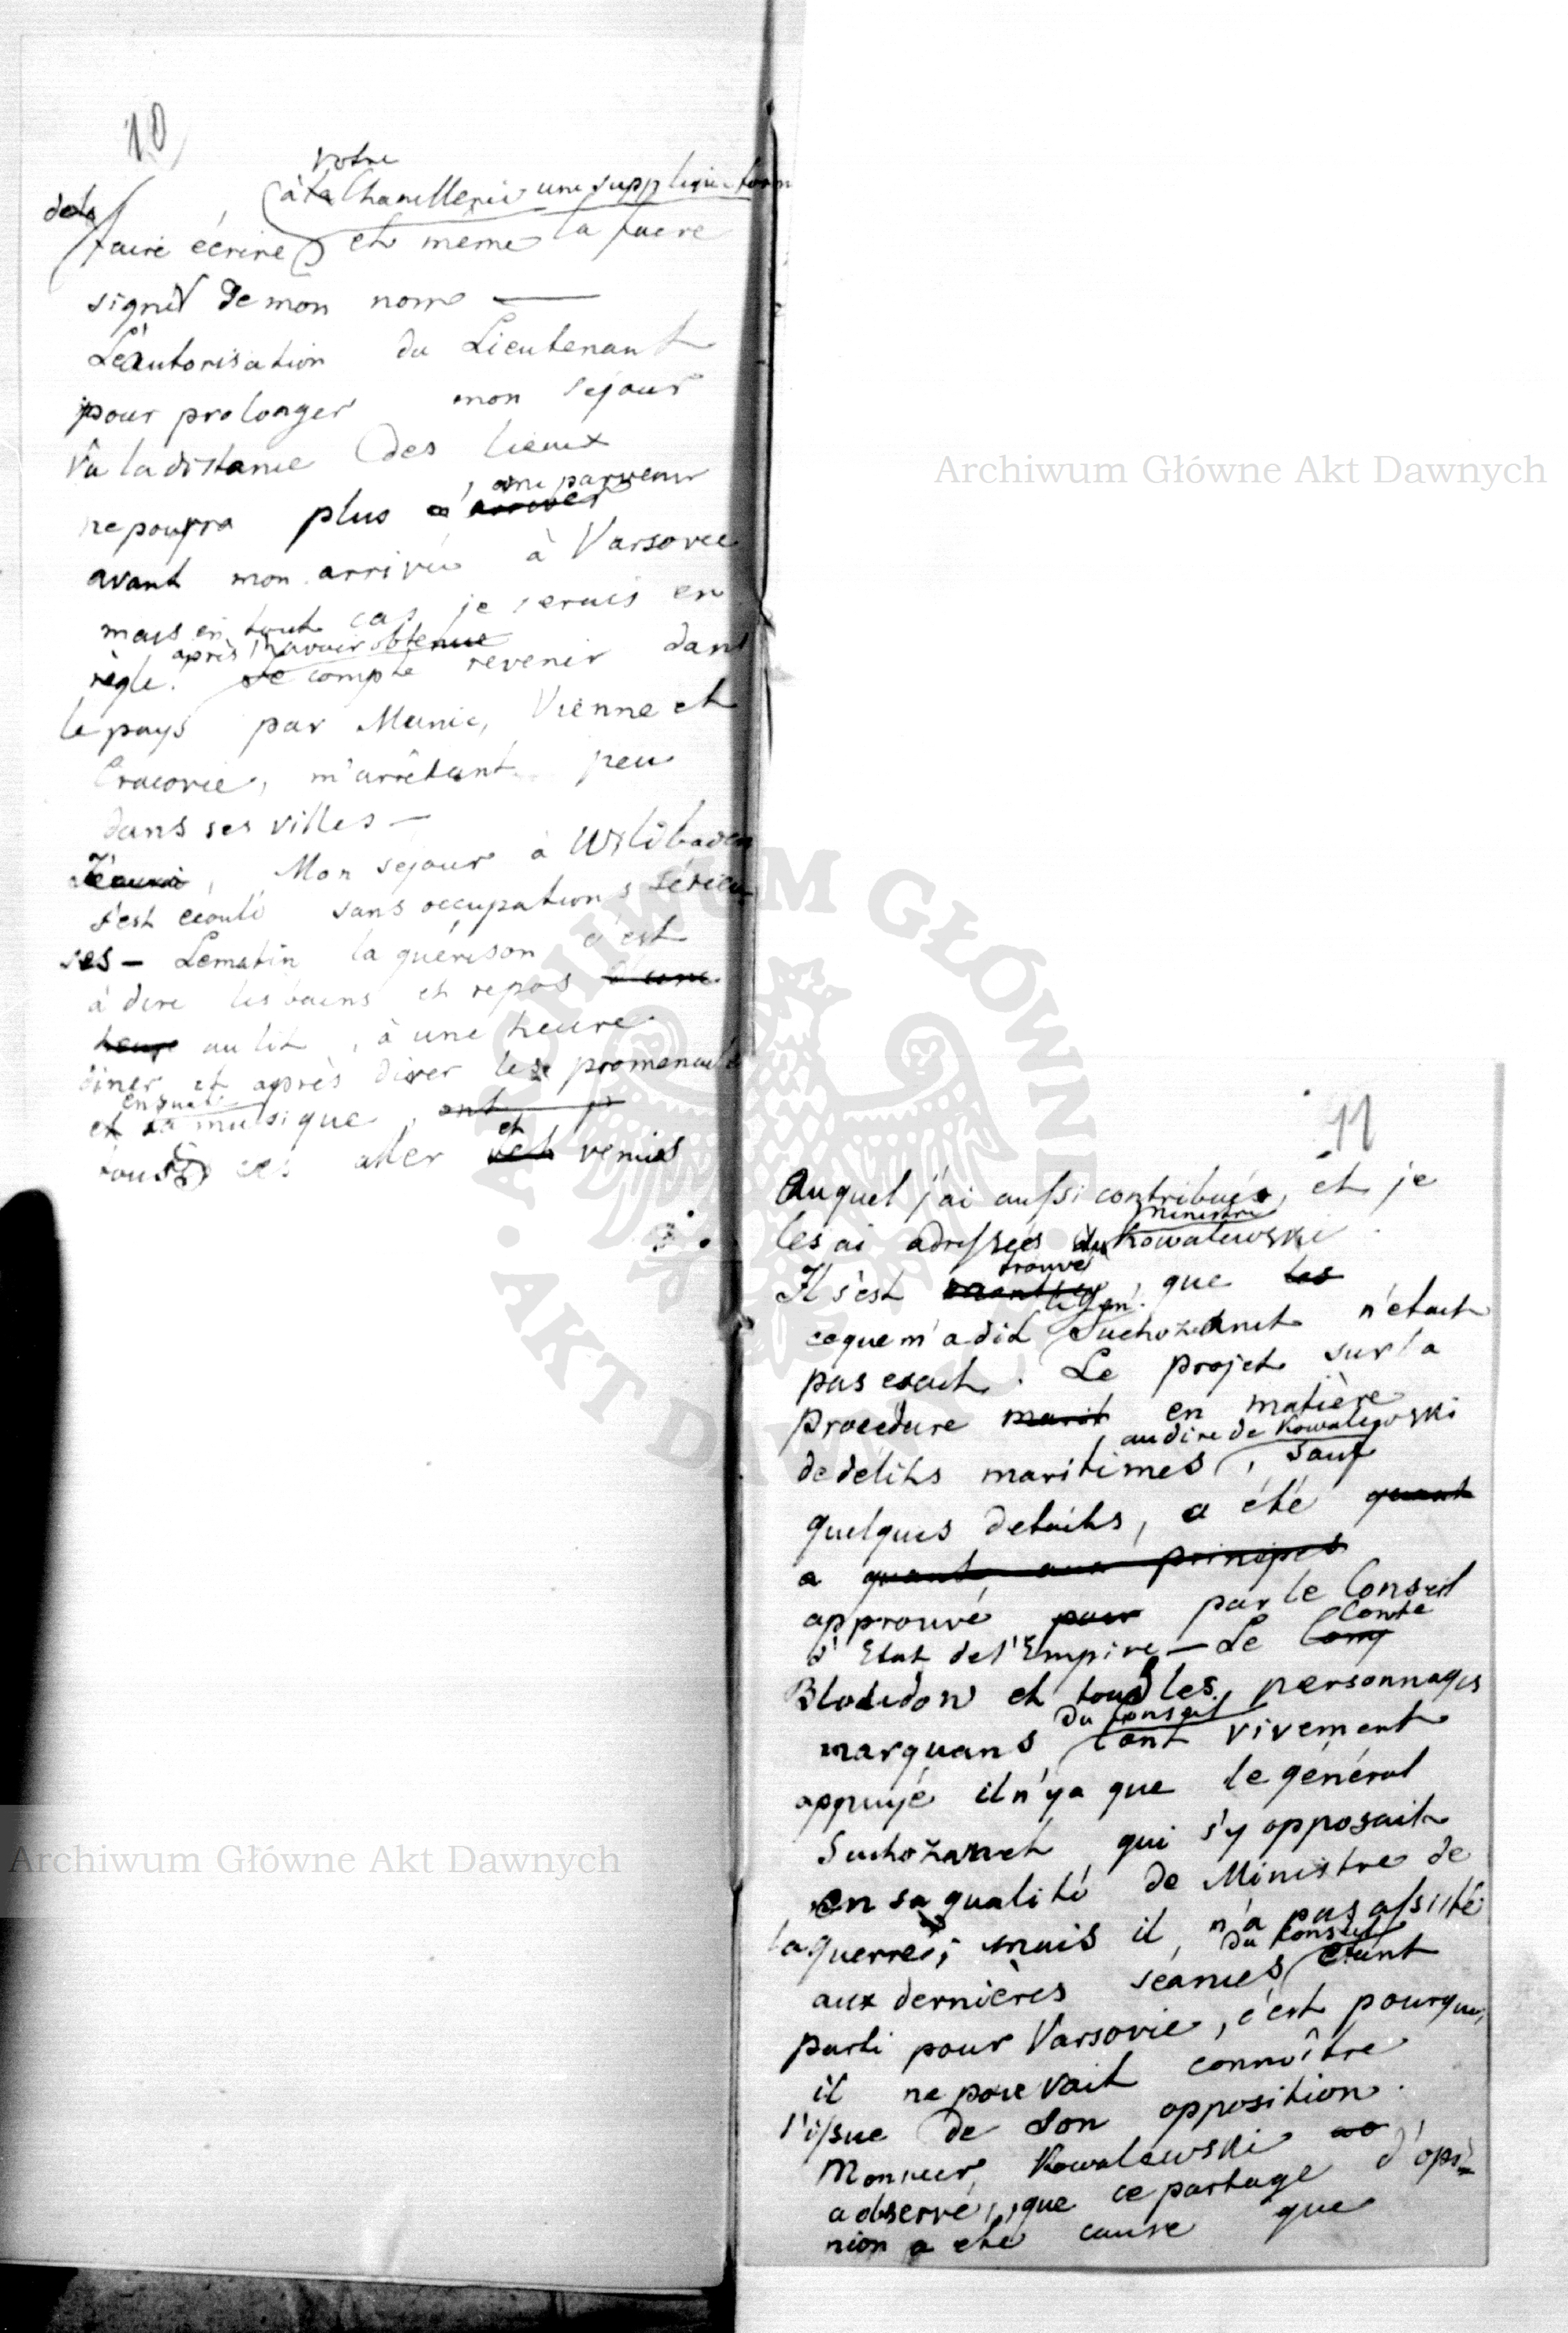 10
votre
à la Chancellerie une supplique
de la
faire écrire et même la faire
signer de mon nom —
L'autorisation du Lieutenant
pour prolonger mon séjour
vu la distance des lieux
me parvenir
ne pourra plus arriver
avant mon arrivée à Varsovie
mais en tout cas je serais en
après l'avoir obtenue
règle. Je compte revenir dans
le pays par Munic, Vienne et
Cracovie, m'arrêtant peu
dans ses villes —
Mon séjour à Wildbaden
s'est écoulé sans occupations sérieu-
ses — Le matin la guérison c'est
à dire les bains et repos d'une
heure au lit, à une heure
diner et après diner les promenade
ensuite
et la musique, ont
et
tous ces aller venies
Archiwum Główne Akt Dawnych
11
Auquel j'ai aussi contribué, et je
ministre
les ai adressées du Kowalewski
trouvé
Il s'est que les
le Gen.
ce que m'a dit Suchozanet n'était
pas exact. Le projet sur la
procedure marit en matière
au dire de Kowalewski
de délits maritimes, sauf
quelques details, a été quant
a quant aux principes
approuvé pour par le Conseil
Comte
d'Etat de l'Empire — Le Comt
Bloudow et tous les personnages
du Conseil
marquans l'ont vivement
appuyé il n'y a que le général
Suchozanet qui s'y opposait
en sa qualité de Ministre de
la guerre; mais il n'a pas assisté
du Conseil
aux dernières séances étant
parti pour Varsovie, c'est pourquoi
il ne pouvait connoître
l'issue de son opposition.
Monsieur Kowalewski
a observé, que ce partage d'opi-
nion a été cause que
Archiwum Główne Akt Dawnych
ARCHIWUM GŁÓWNE AKT DAWNYCH